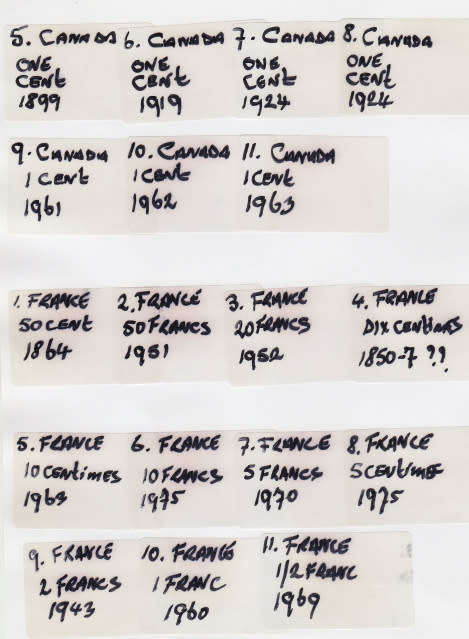 5. CANADA
ONE
CENt
1899
6. CANADA
ONE
CENt
1919
7. CANADA
ONE
CENt
1924
8. CANADA
ONE
CENt
1924
9. CANADA
1 CENt
1961
10. CANADA
1 CENt
1962
11. CANADA
1 CENt
1963
1. FRANCE
50 CENt
1864
2. FRANCE
50 FRANCS
1951
3. FRANCE
20 FRANCS
1952
4. FRANCE
DIX CENtimAS
1850-7 ??
5. FRANCE
10 CENtimES
1963
6. FRANCE
10 FRANCS
1975
7. FRANCE
5 FRANCS
1970
8. FRANCE
5 CENtimES
1975
9. FRANCE
2 FRANCS
1943
10. FRANCE
1 FRANC
1960
11. FRANCE
1/2 FRANC
1969